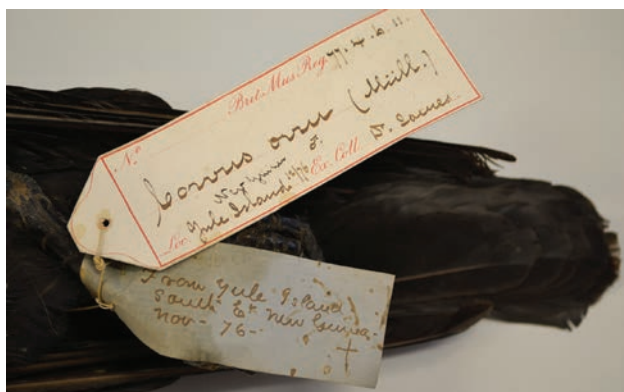 No. Brit. Mus. Reg. 77.4.6.11.
Corvus orru (Müll.)
New Guinea ♂.
Loc. Yule Island Ex. Coll. Dr. James
From Yule Island
South Et. New Guinea
Nov- 76-